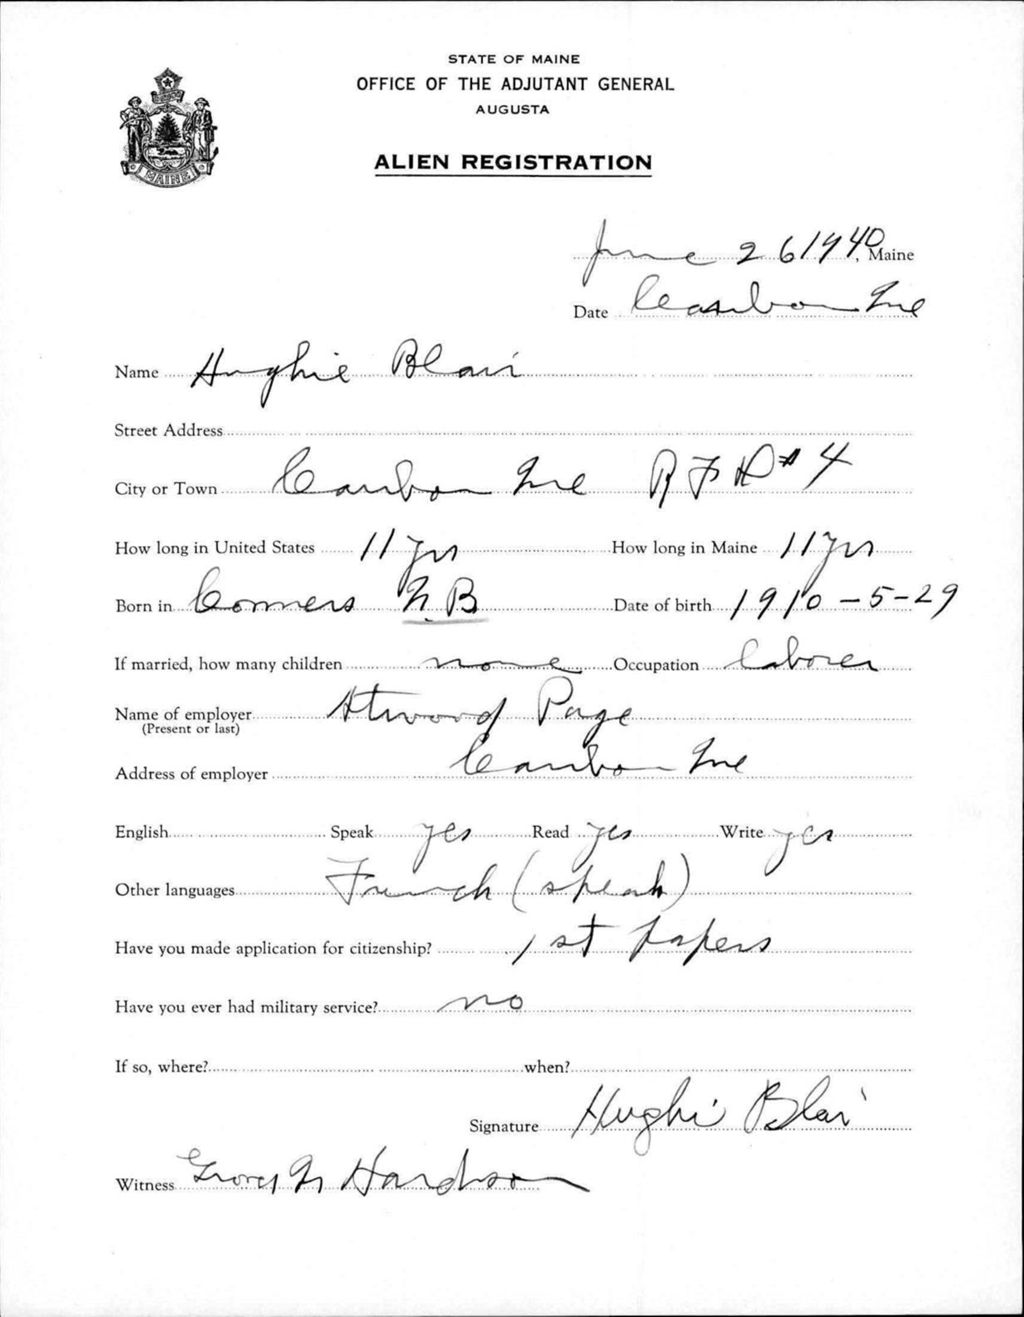 STATE OF MAINE
OFFICE OF THE ADJUTANT GENERAL
AUGUSTA
ALIEN REGISTRATION
MAINE
June 26 1940, Maine
Date Caribou Me
Name Hughie Blair
Street Address
City or Town Caribou Me R F D # 4
How long in United States 11 yrs How long in Maine 11 yrs
Born in Conners N.B Date of birth 1910-5-29
If married, how many children none Occupation laborer
Name of employer Atwood Page
(Present or last)
Address of employer Caribou Me
English Speak yes Read yes Write yes
Other languages French (speak)
Have you made application for citizenship? 1st papers
Have you ever had military service? no
If so, where? when?
Signature Hughi Blair
Witness N Hardison